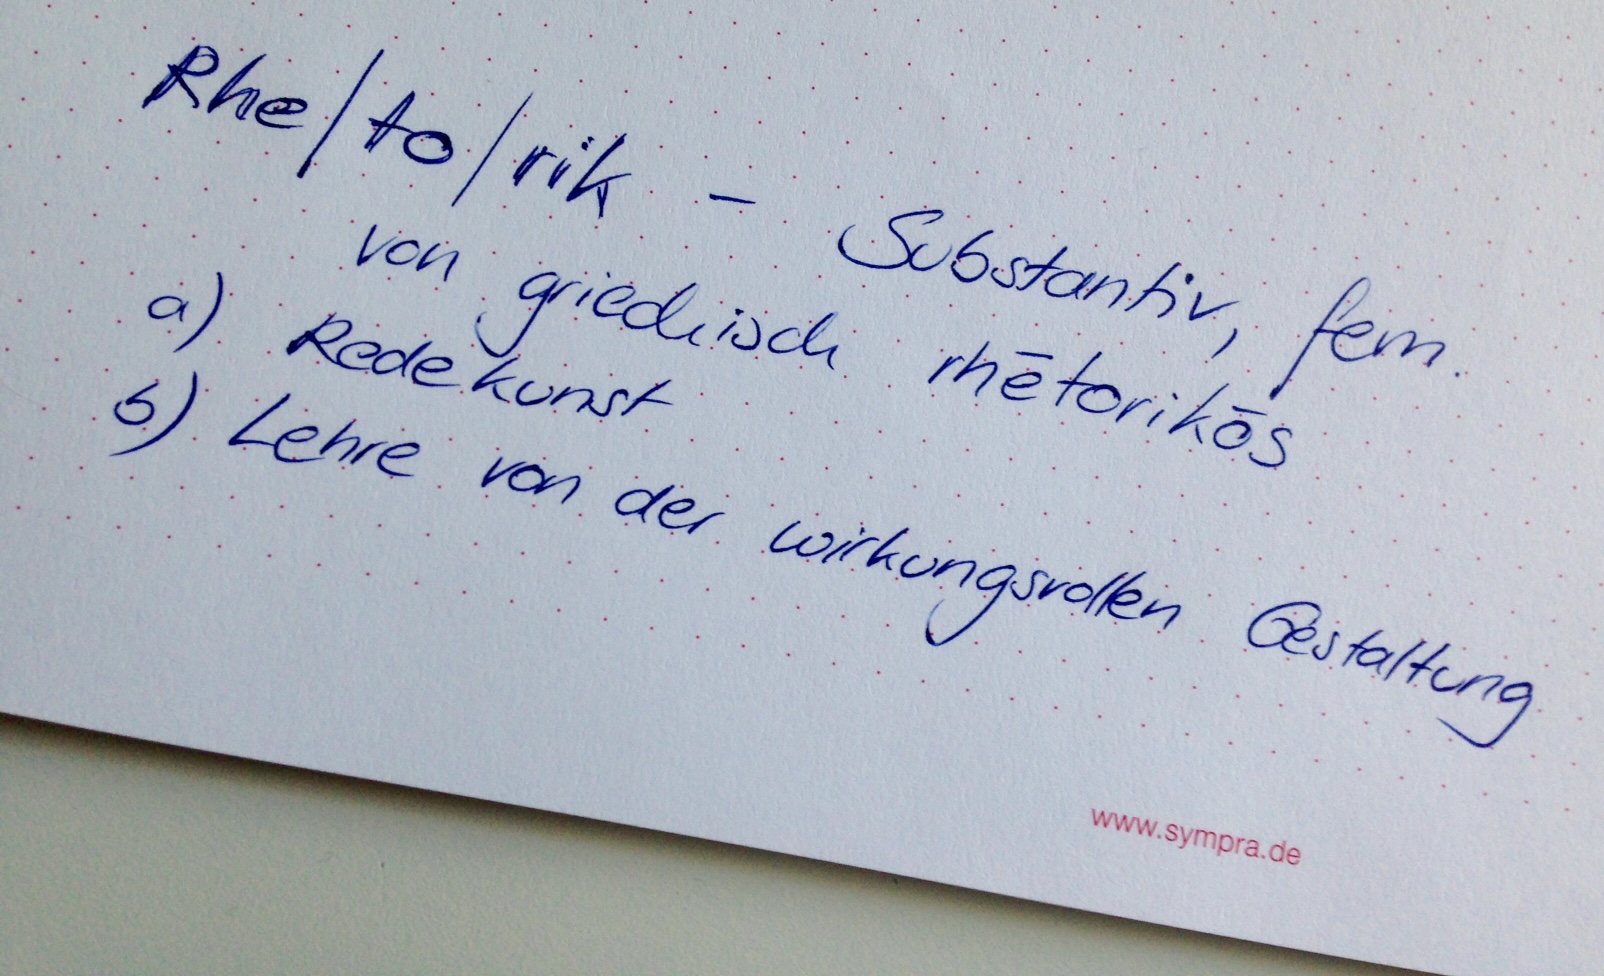 Rhe/to/rik - Substantiv, fem.
von griechisch rhētorikōs
a) Redekunst
b) Lehre von der wirkungsvollen Gestaltung
www.sympra.de